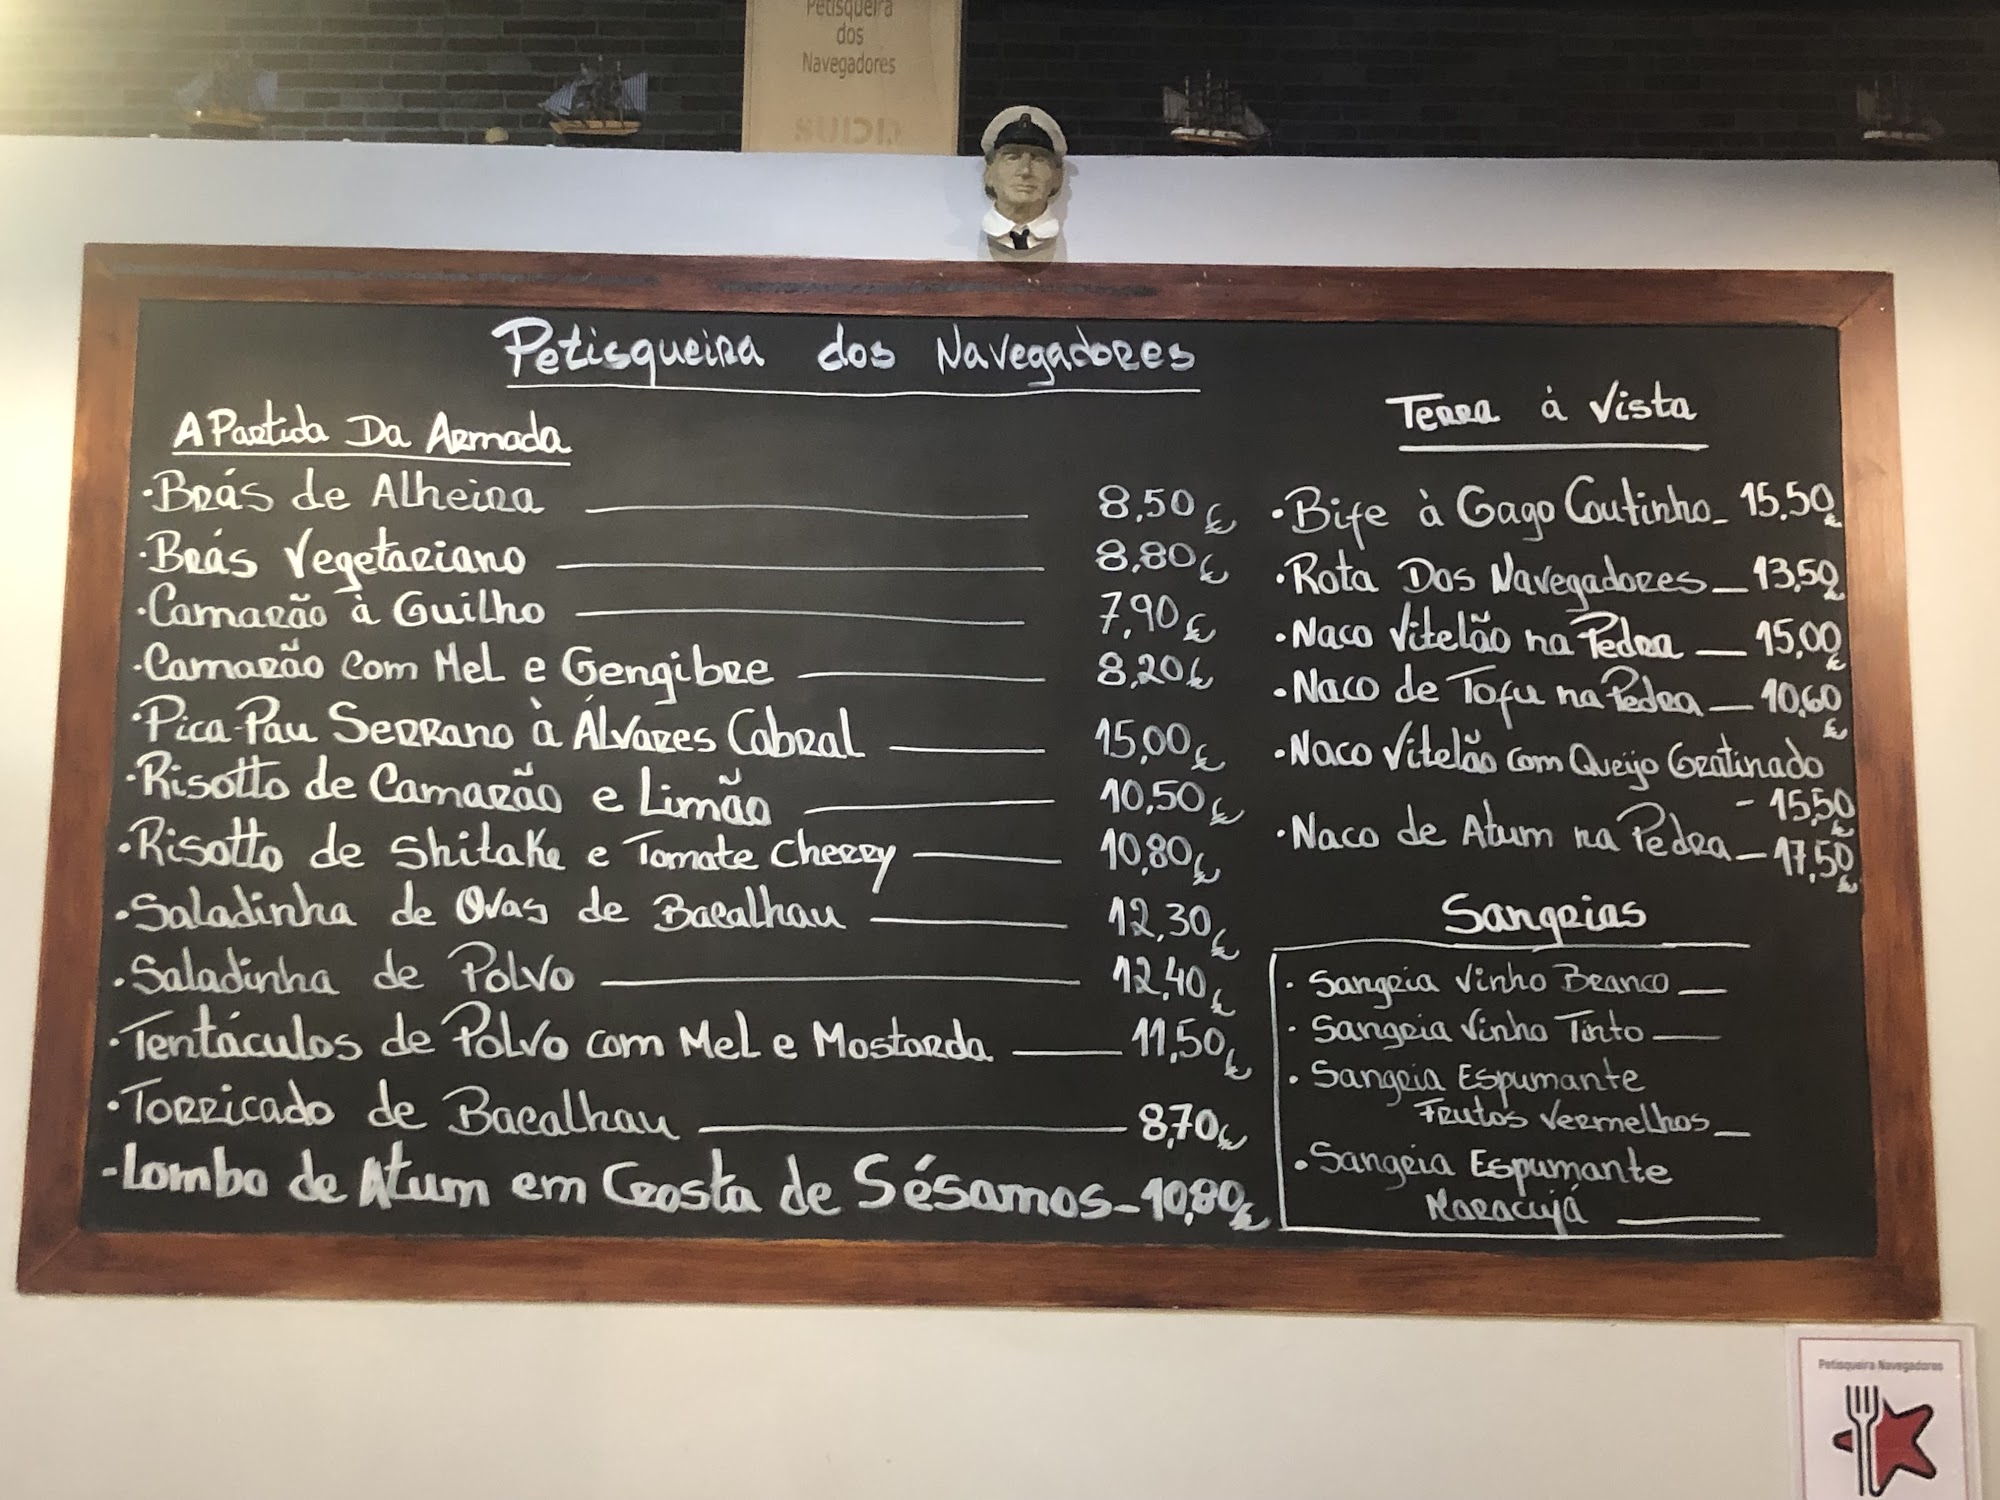 Petisqueira
dos
Navegadores
Petisqueira dos Navegadores
A Partida Da Armada
·Brás de Alheira 8,50€
·Brás Vegetariano 8,80€
·Camarão à Guilho 7,90€
·Camarão com Mel e Gengibre 8,20€
·Pica-Pau Serrano à Álvares Cabral 15,00€
·Risotto de Camarão e Limão 10,50€
·Risotto de Shitake e Tomate Cherry 10,80€
·Saladinha de Ovas de Bacalhau 12,30€
·Saladinha de Polvo 12,40€
·Tentáculos de Polvo com Mel e Mostarda 11,50€
·Torricado de Bacalhau 8,70€
-Lombo de Atum em Crosta de Sésamos-10,80€
Terra à Vista
·Bife à Gago Coutinho 15,50€
·Rota Dos Navegadores 13,50€
·Naco Vitelão na Pedra 15,00€
·Naco de Tofu na Pedra 10,60€
·Naco Vitelão com Queijo Gratinado
- 15,50€
·Naco de Atum na Pedra 17,50€
Sangrias
·Sangria Vinho Branco
·Sangria Vinho Tinto
·Sangria Espumante
Frutos Vermelhos
·Sangria Espumante
Maracujá
Petisqueira Navegadores